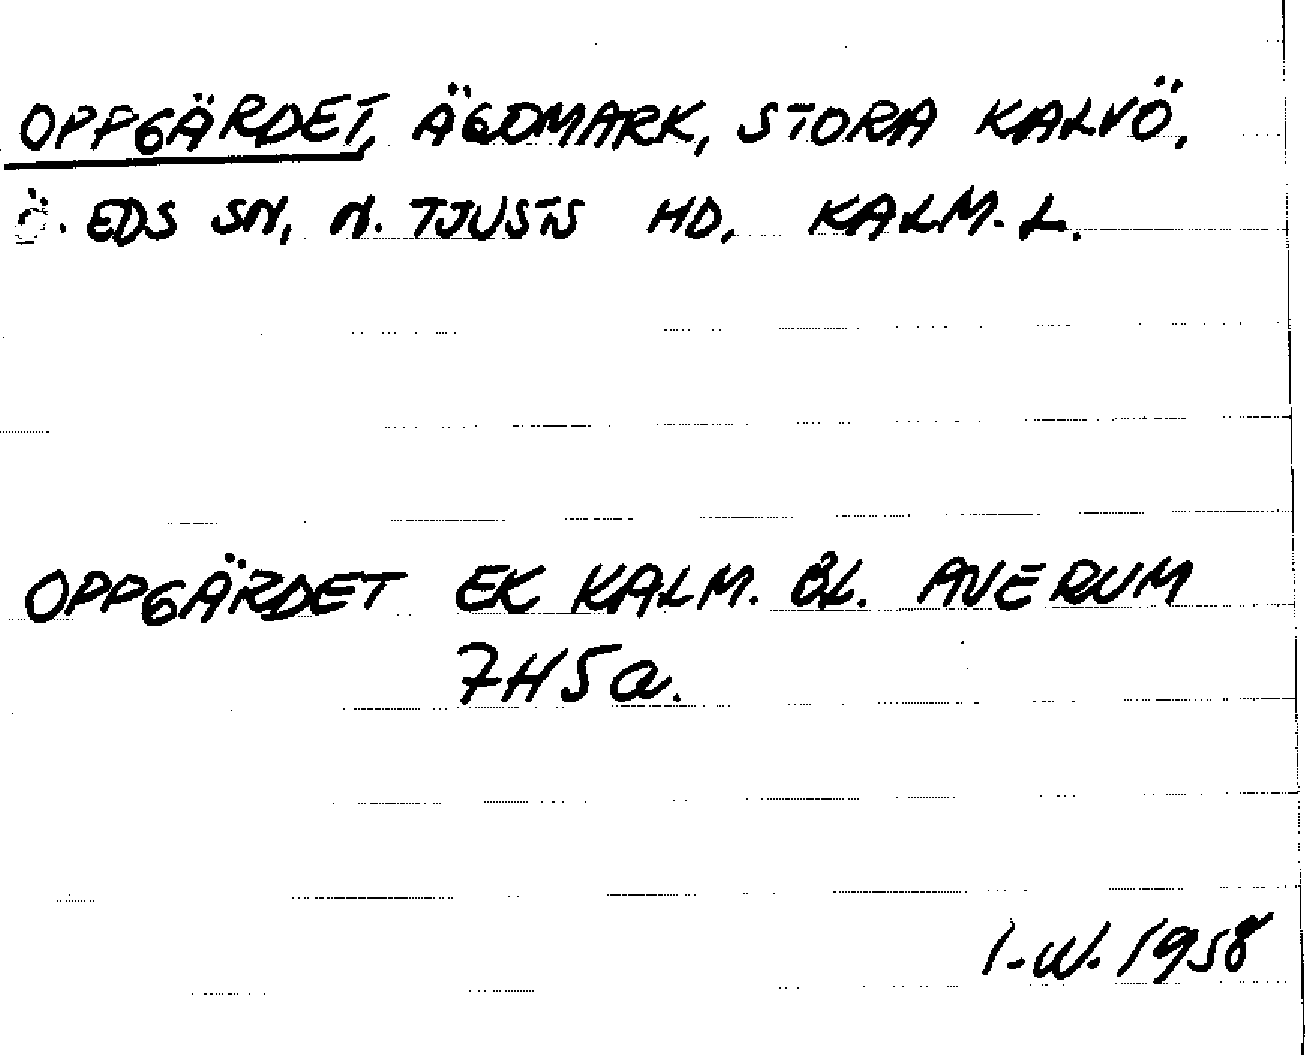 OPPGÄRDET, ÄGOMARK, STORA KALVÖ,
Ö. EDS SN, N. TJUSTS HD, KALM. L.
OPPGÄRDET EK KALM. BL. AVERUM
7H5a.
I.W. 1958